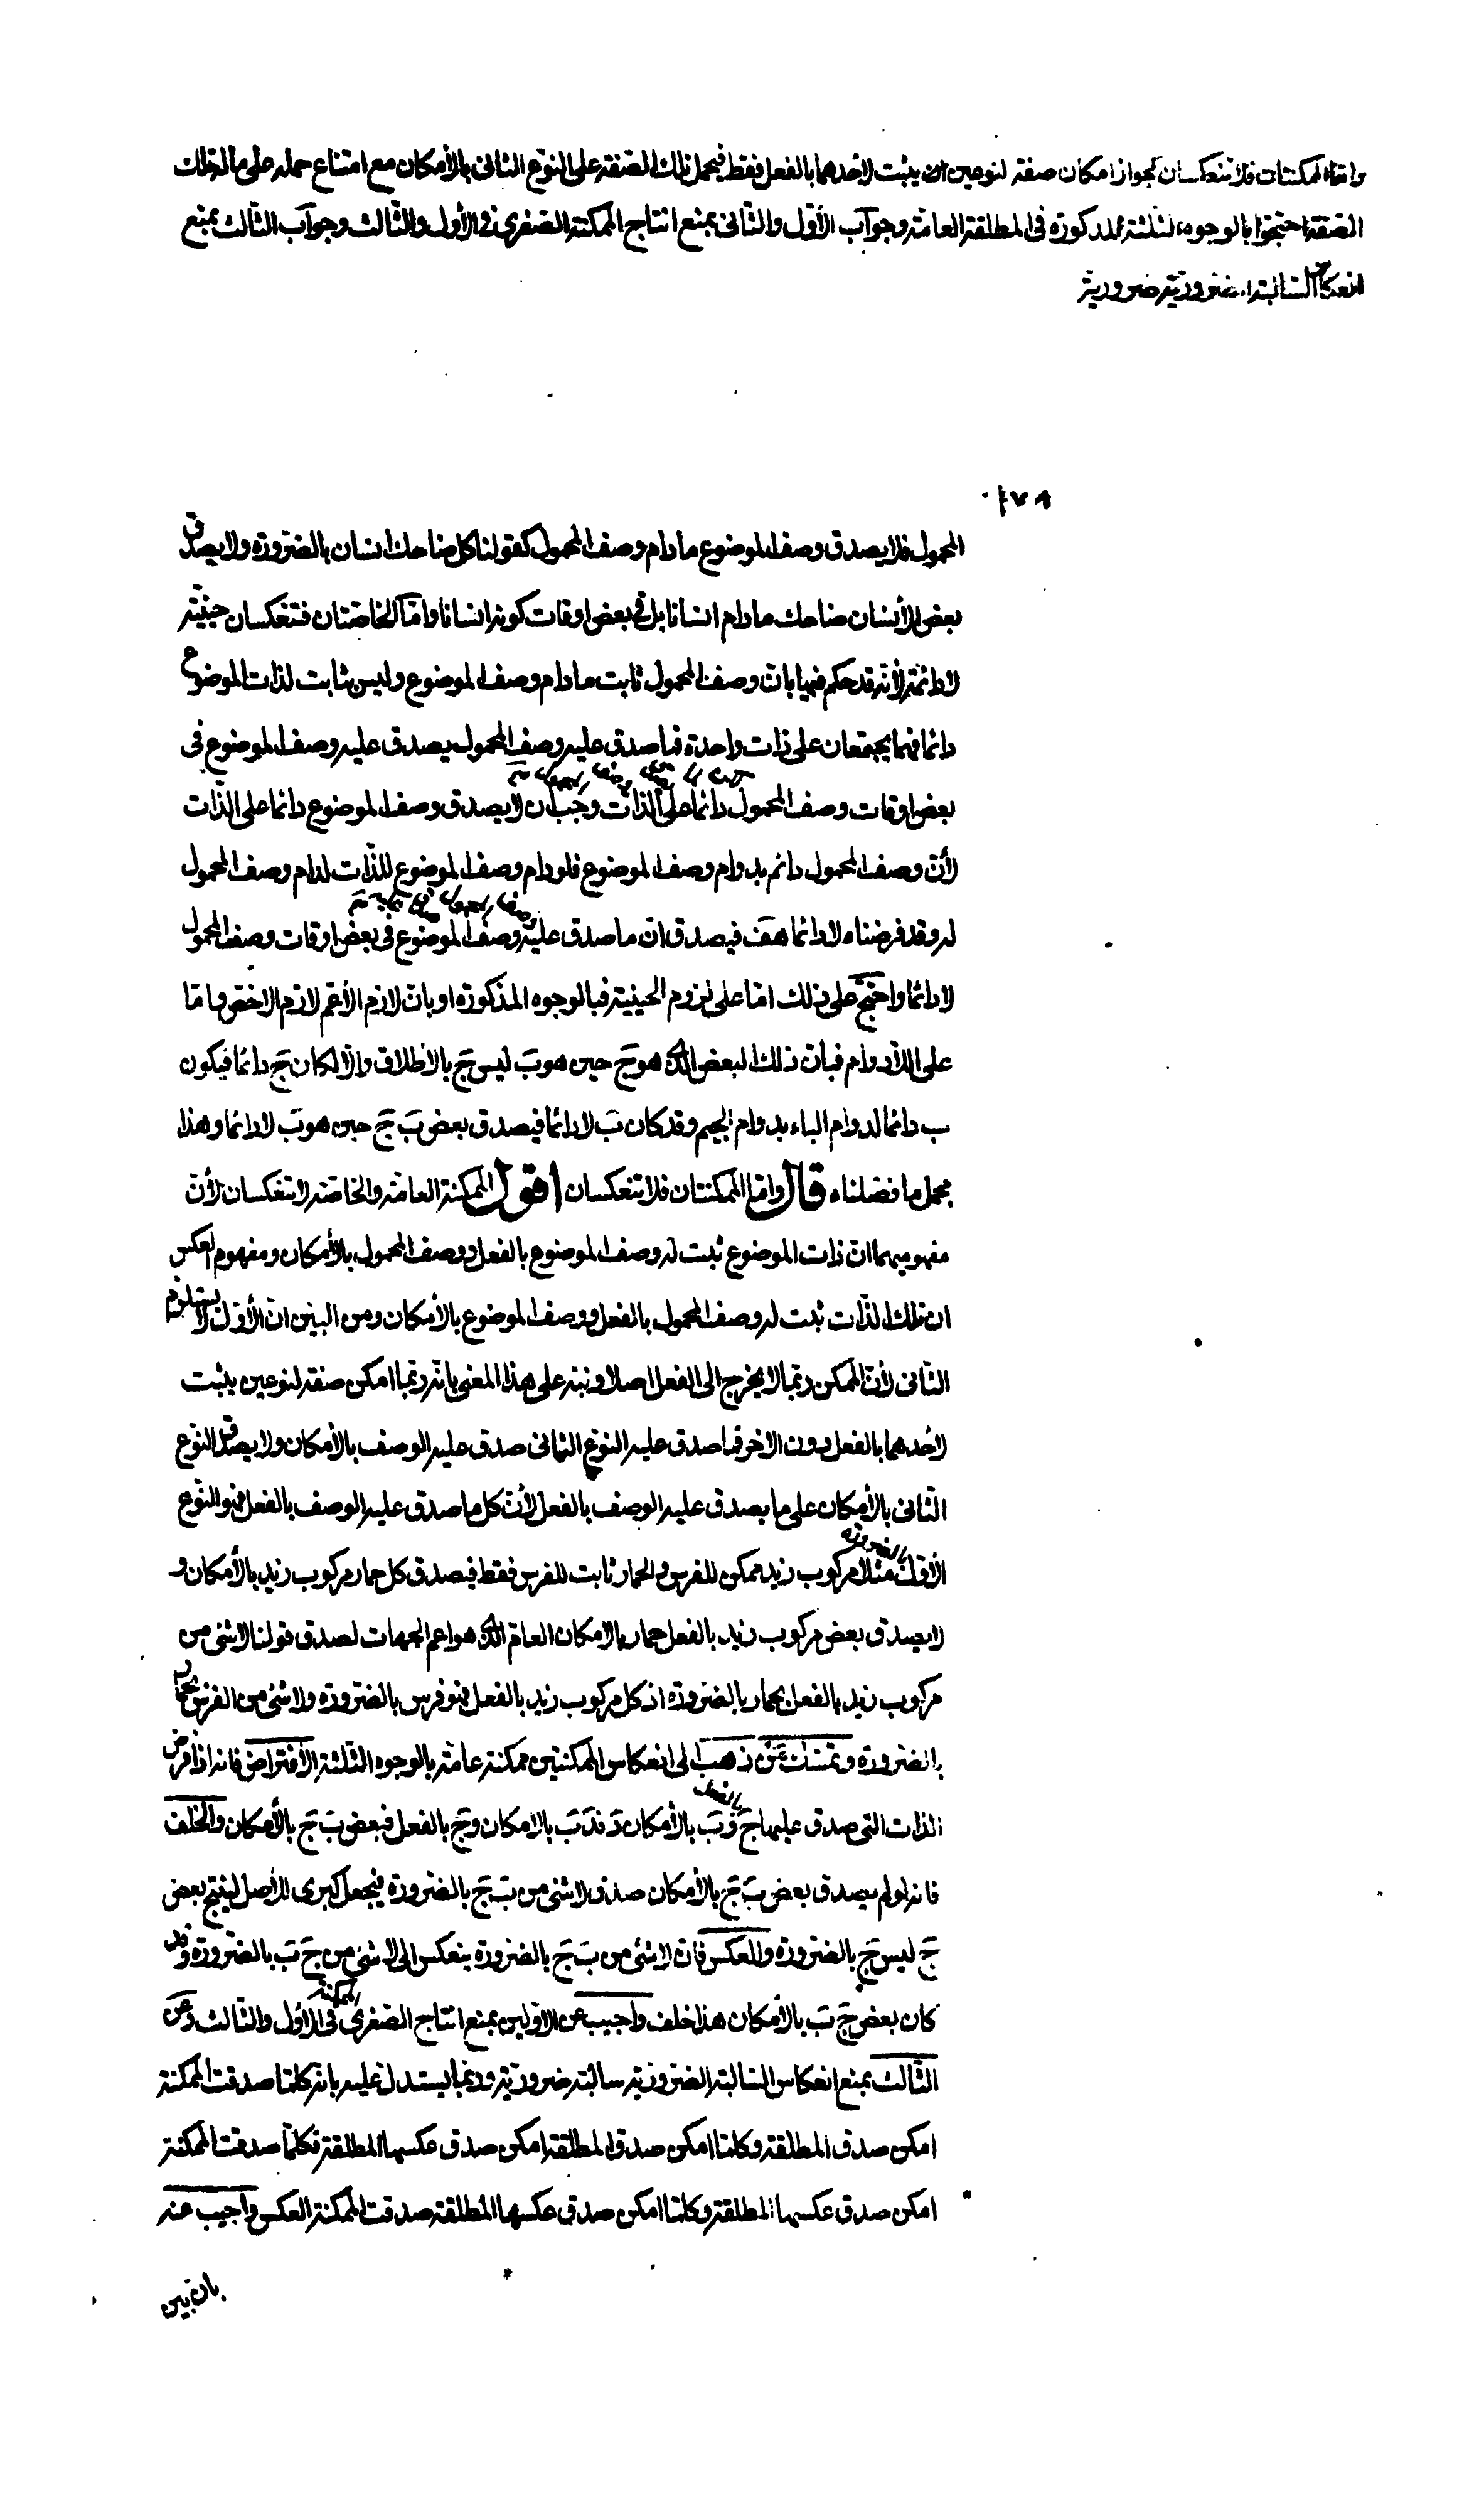 واما الممكنتان فلا تنعكسان لجواز امكان صفة لنوعين ان يثبت لاحدهما بالفعل فقط فيحمل تلك الصفة على النوع الثانى بالأمكان مع امتناع حمله على ماله تلك
الصفة احتجوا بالوجوه الثلثة المذكورة فى المطلقة العامة وجواب الأول والثانى بمنع انتاج الممكنة الصغرى فى الأول والثالث وجواب الثالث بمنع
انعكاس السالبة الضرورية ضرورية
١٧٨
المحمول فلا يصدق وصف الموضوع ما دام وصف المحمول كقولنا كل ضاحك انسان بالضرورة ولا يصدق
بعض الأنسان ضاحك ما دام انسانا بل فى بعض اوقات كونه انسانا واما الخاصتان فتنعكسان حينية
لا دائمة لأنه قد حكم فيها بان وصف المحمول ثابت ما دام وصف الموضوع وليس بثابت لذات الموضوع
دائما فهما يجتمعان على ذات واحدة فما صدق عليه وصف المحمول يصدق عليه وصف الموضوع فى
بعض اوقات وصف المحمول دائما على الذات وجب ان لا يصدق وصف الموضوع دائما على الذات
لأن وصف المحمول دائم بدوام وصف الموضوع فلو دام وصف الموضوع للذات لدام وصف المحمول
له وقد فرضناه لا دائما هف فيصدق ان ما صدق عليه وصف الموضوع فى بعض اوقات وصف المحمول
لا دائما واحتج على ذلك اما على لزوم الحينية فبالوجوه المذكورة او بان لازم الأعم لازم الاخص واما
على اللادوام فبان ذلك البعض الذى هو ج حين هو ب ليس ج بالاطلاق والا لكان ج دائما فيكون
ب دائما لدوام الباء بدوام الجيم وقد كان ب لا دائما فيصدق بعض ب ج حين هو ب لا دائما وهذا
مجمل ما فصلناه قال واما الممكنتان فلا تنعكسان اقول الممكنة العامة والخاصة لا تنعكسان لأن
مفهوميهما ان ذات الموضوع ثبت له وصف الموضوع بالفعل ووصف المحمول بالأمكان ومفهوم العكس
ان تلك الذات ثبت له وصف المحمول بالفعل ووصف الموضوع بالأمكان ومن البين ان الأول لا يستلزم
الثانى لأن الممكن ربما لا يخرج الى الفعل اصلا ونبه على هذا المعنى بانه ربما امكن صفة لنوعين يثبت
لأحدهما بالفعل دون الاخر فما صدق عليه النوع الثانى صدق عليه الوصف بالأمكان ولا يصدق النوع
الثانى بالأمكان على ما يصدق عليه الوصف بالفعل لأن كل ما صدق عليه الوصف بالفعل فهو النوع
الأول بالضرورة مثلا مركوب زيد ممكن للفرس والحمار ثابت للفرس فقط فيصدق كل حمار مركوب زيد بالأمكان و
لا يصدق بعض مركوب زيد بالفعل حمار بالامكان العام الذى هو اعم الجهات لصدق قولنا لا شئ من
مركوب زيد بالفعل بحمار بالضرورة اذ كل مركوب زيد بالفعل فهو فرس بالضرورة ولا شئ من الفرس بحمار
بالضرورة وتمسك من ذهب الى انعكاس الممكنتين ممكنة عامة بالوجوه الثلثة الأفتراض فانه اذا فرض
الذات التى صدق عليها ج بالفعل و ب بالأمكان د فد ب بالامكان وج بالفعل فبعض ب ج بالأمكان والخلف
فانه لو لم يصدق بعض ب ج بالأمكان صدق لا شئ من ب ج بالضرورة فيجعل كبرى للأصل لينتج بعض
ج ليس ج بالضرورة والعكس فان لا شئ من ب ج بالضرورة ينعكس الى لا شئ من ج ب بالضرورة وقد
كان بعض ج ب بالأمكان هذا خلف واجيب عن الاولين بمنع انتاج الصغرى الممكنة فى الأول والثالث وعن
الثالث بمنع انعكاس السالبة الضرورية سالبة ضرورية وربما يستدل عليه بانه كلما صدقت الممكنة
امكن صدق المطلقة وكلما امكن صدق المطلقة امكن صدق عكسها المطلقة فكلما صدقت الممكنة
امكن صدق عكسها المطلقة وكلما امكن صدق عكسها المطلقة صدقت الممكنة العكس واجيب عنه